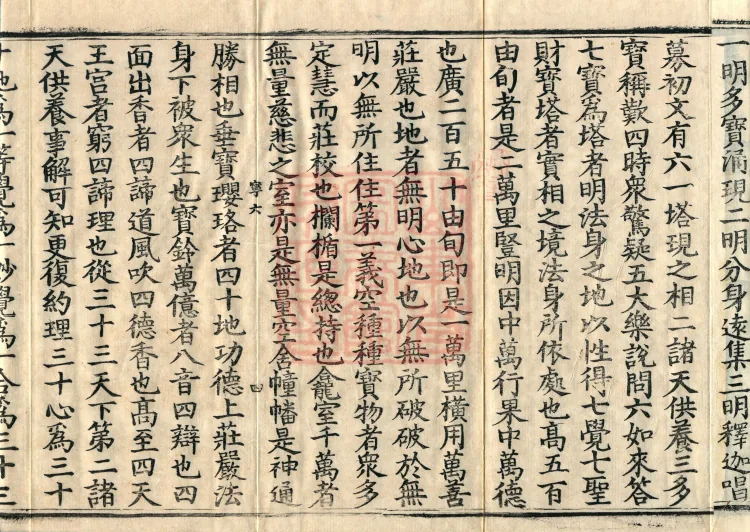 一明多寶涌現二明分身遠集三明釋迦唱
募初文有六一塔現之相二諸天供養三多
寶稱歎四時衆驚疑五大樂說問六如來答
七寶爲塔者明法身之地以性得七覺七聖
財寶塔者實相之境法身所依處也髙五百
由旬者是二萬里豎明因中萬行果中萬德
也廣二百五十由旬即是一萬里橫用萬善
莊嚴也地者無明心地也以無所破破於無
明以無所住住第一義空種種寶物者衆多
定慧而莊校也欄楯是緫持也龕室千萬者
無量慈悲之室亦是無量空舍幢幡是神通
寧六
四
勝相也垂寶瓔珞者四十地功德上莊嚴法
身下被衆生也寶鈴萬億者八音四辯也四
面出香者四諦道風吹四德香也髙至四天
王宫者窮四諦理也從三十三天下第二諸
天供養事解可知更復約理三十心爲三十
十地爲一等覺爲一妙覺爲一合爲三十三